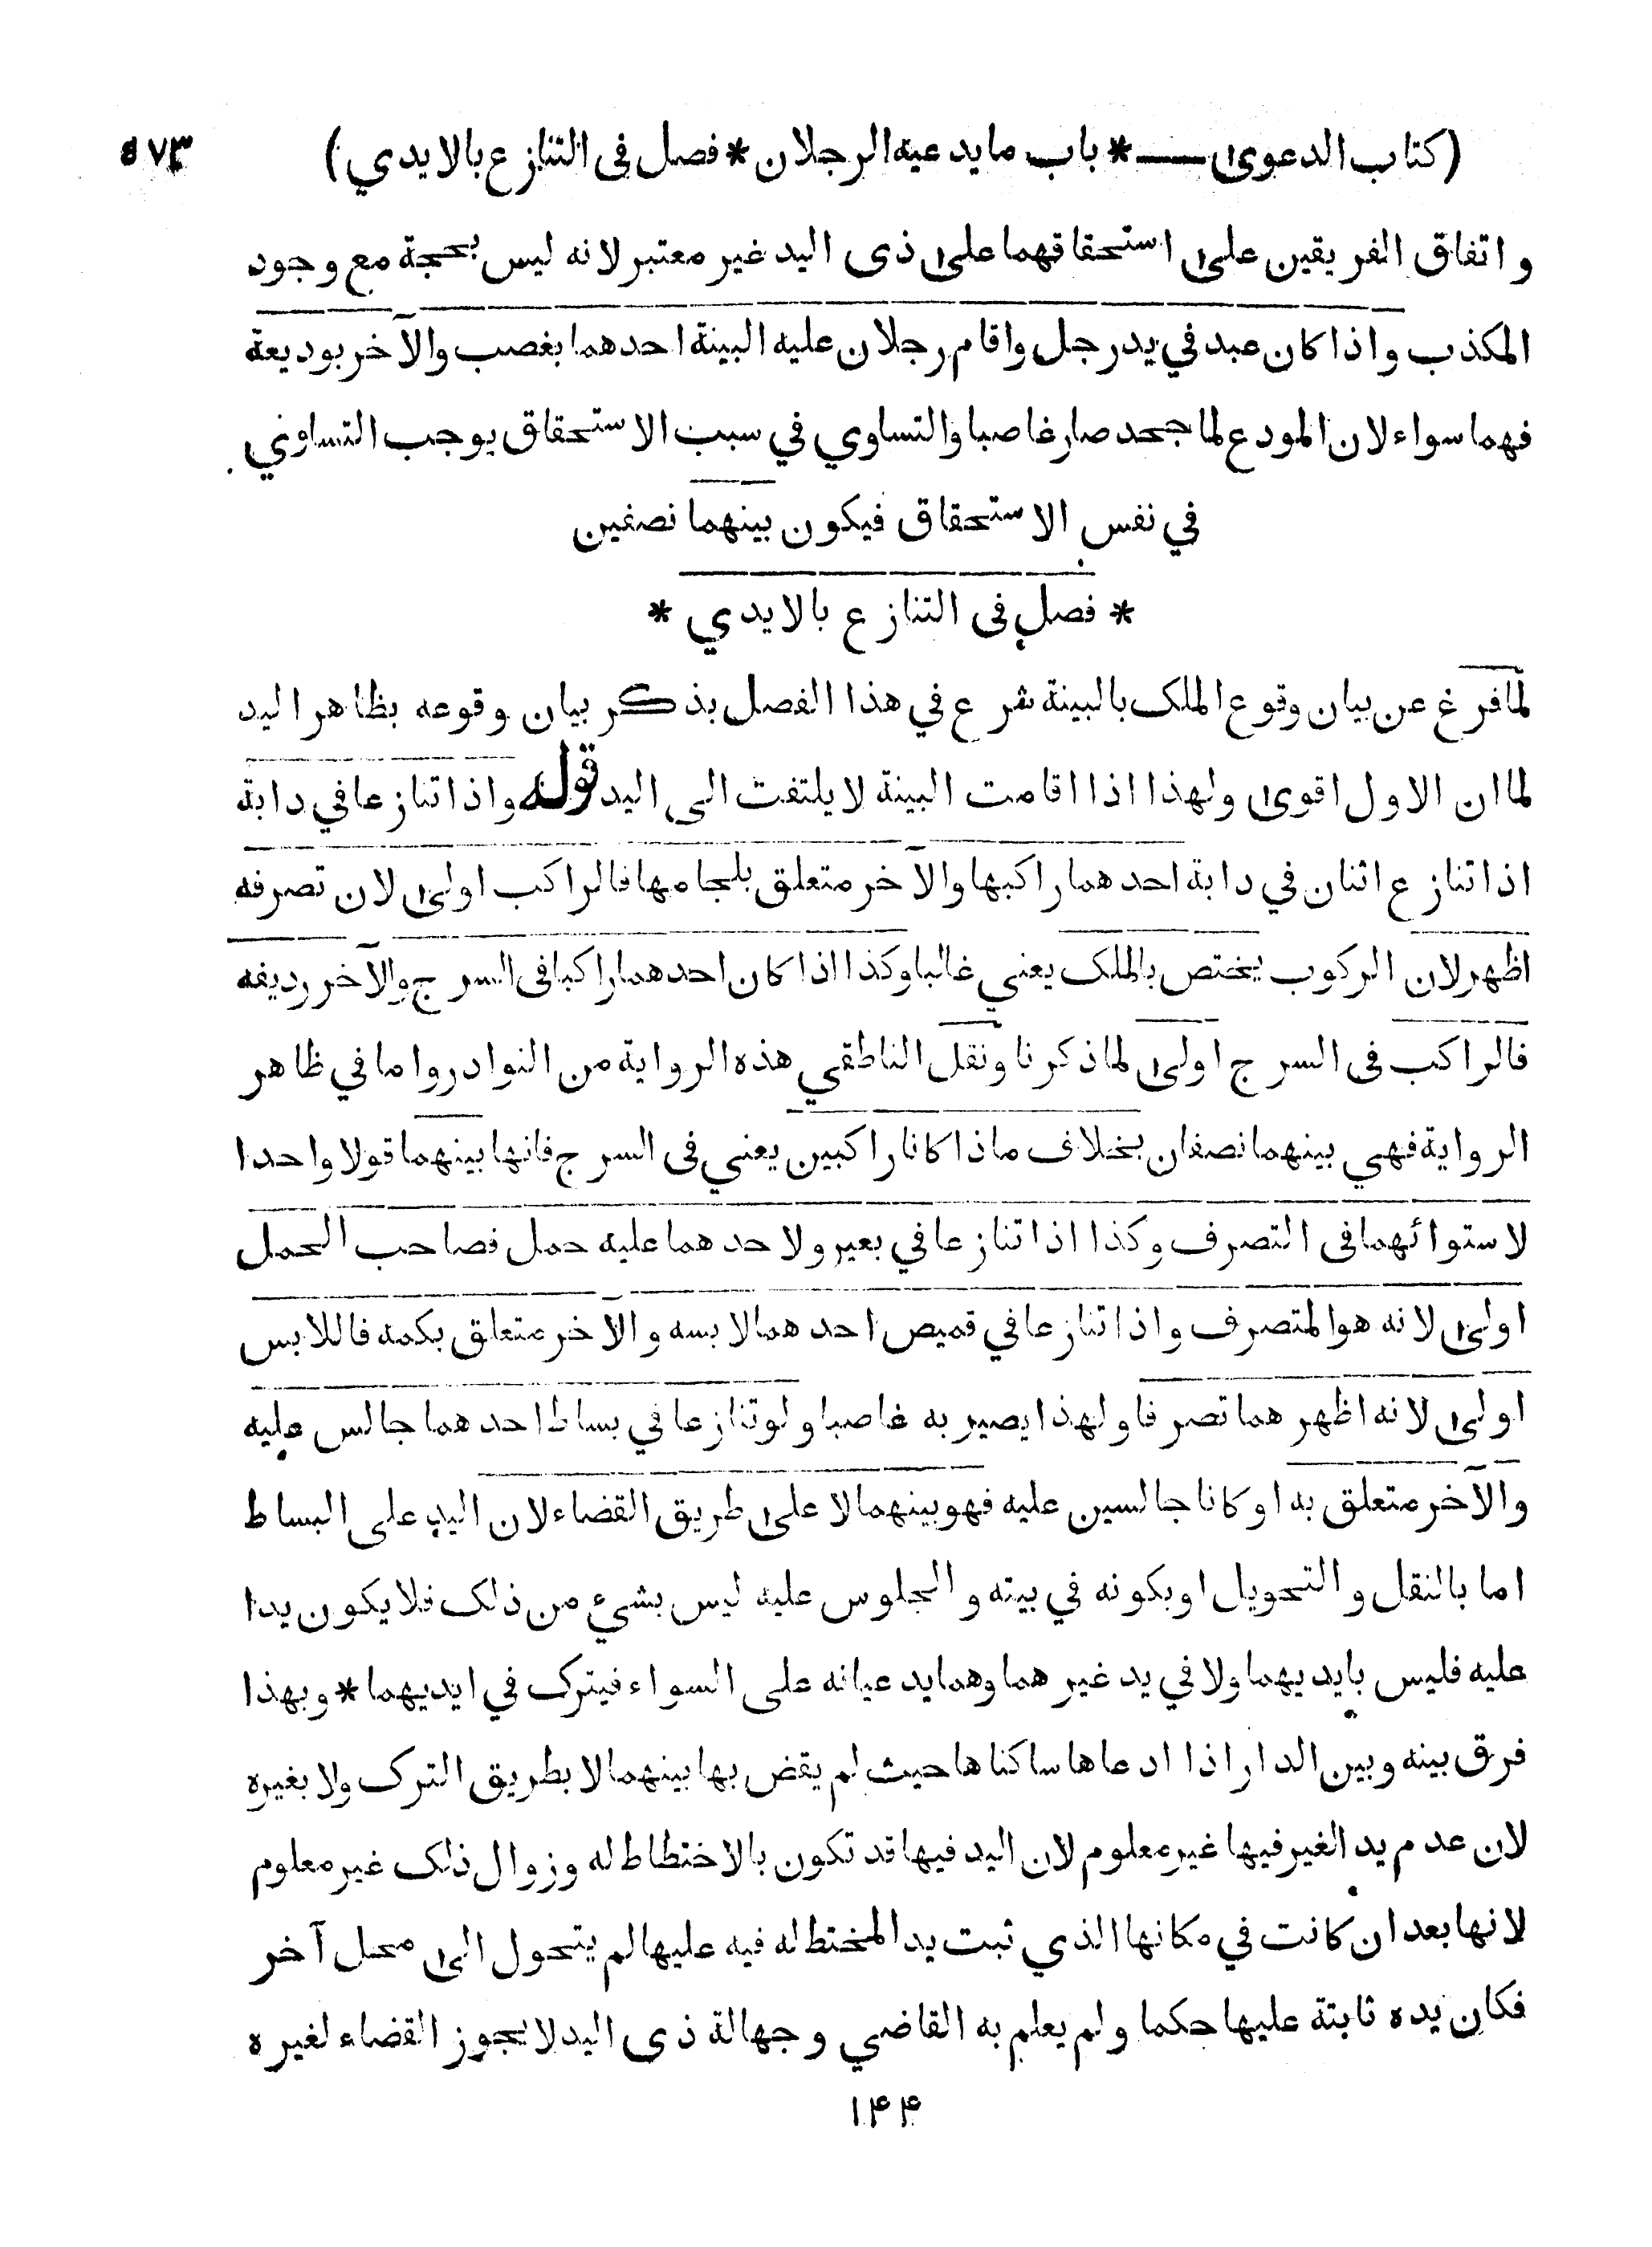 (كتاب الدعوى ــــ * باب ما يدعيه الرجلان * فصل فى التنازع بالايدي) ٥٧٣
واتفاق الفريقين على استحقاقهما على ذى اليد غير معتبر لانه ليس بحجة مع وجود
المكذب واذا كان عبد في يد رجل واقام رجلان عليه البينة احدهما بغصب والآخر بوديعة
فهما سواء لان المودع لما جحد صار غاصبا والتساوي في سبب الاستحقاق يوجب التساوي
في نفس الاستحقاق فيكون بينهما نصفين
* فصل فى التنازع بالايدي *
لما فرغ عن بيان وقوع الملك بالبينة شرع في هذا الفصل بذكر بيان وقوعه بظاهر اليد
لما ان الاول اقوى ولهذا اذا اقامت البينة لا يلتفت الى اليد قوله واذا تنازعا في دابة
اذا تنازع اثنان في دابة احدهما راكبها والآخر متعلق بلجامها فالراكب اولى لان تصرفه
اظهر لان الركوب يختص بالملك يعني غالبا وكذا اذا كان احدهما راكبا فى السرج والآخر رديفه
فالراكب فى السرج اولى لما ذكرنا ونقل الناطقي هذه الرواية من النوادر واما في ظاهر
الرواية فهي بينهما نصفان بخلاف ما ذا كانا راكبين يعني فى السرج فانها بينهما قولا واحدا
لاستوائهما فى التصرف وكذا اذا تنازعا في بعير ولاحدهما عليه حمل فصاحب الحمل
اولى لانه هو المتصرف واذا تنازعا في قميص احدهما لابسه والآخر متعلق بكمه فاللابس
اولى لانه اظهرهما تصرفا ولهذا يصير به غاصبا ولو تنازعا في بساط احدهما جالس عليه
والآخر متعلق به او كانا جالسين عليه فهو بينهما لا على طريق القضاء لان اليد على البساط
اما بالنقل والتحويل او بكونه في بيته والجلوس عليه ليس بشيء من ذلك فلا يكون يدا
عليه فليس بايديهما ولا في يد غيرهما وهما يدعيانه على السواء فيترك في ايديهما * وبهذا
فرق بينه وبين الدار اذا ادعاها ساكناها حيث لم يقض بها بينهما لا بطريق الترك ولا بغيره
لان عدم يد الغير فيها غير معلوم لان اليد فيها قد تكون بالاختطاط له وزوال ذلك غير معلوم
لانها بعد ان كانت في مكانها الذي ثبت يد المختط له فيه عليها لم يتحول الى محل آخر
فكان يده ثابتة عليها حكما ولم يعلم به القاضي وجهالة ذى اليد لا يجوز القضاء لغيره
١٤٤